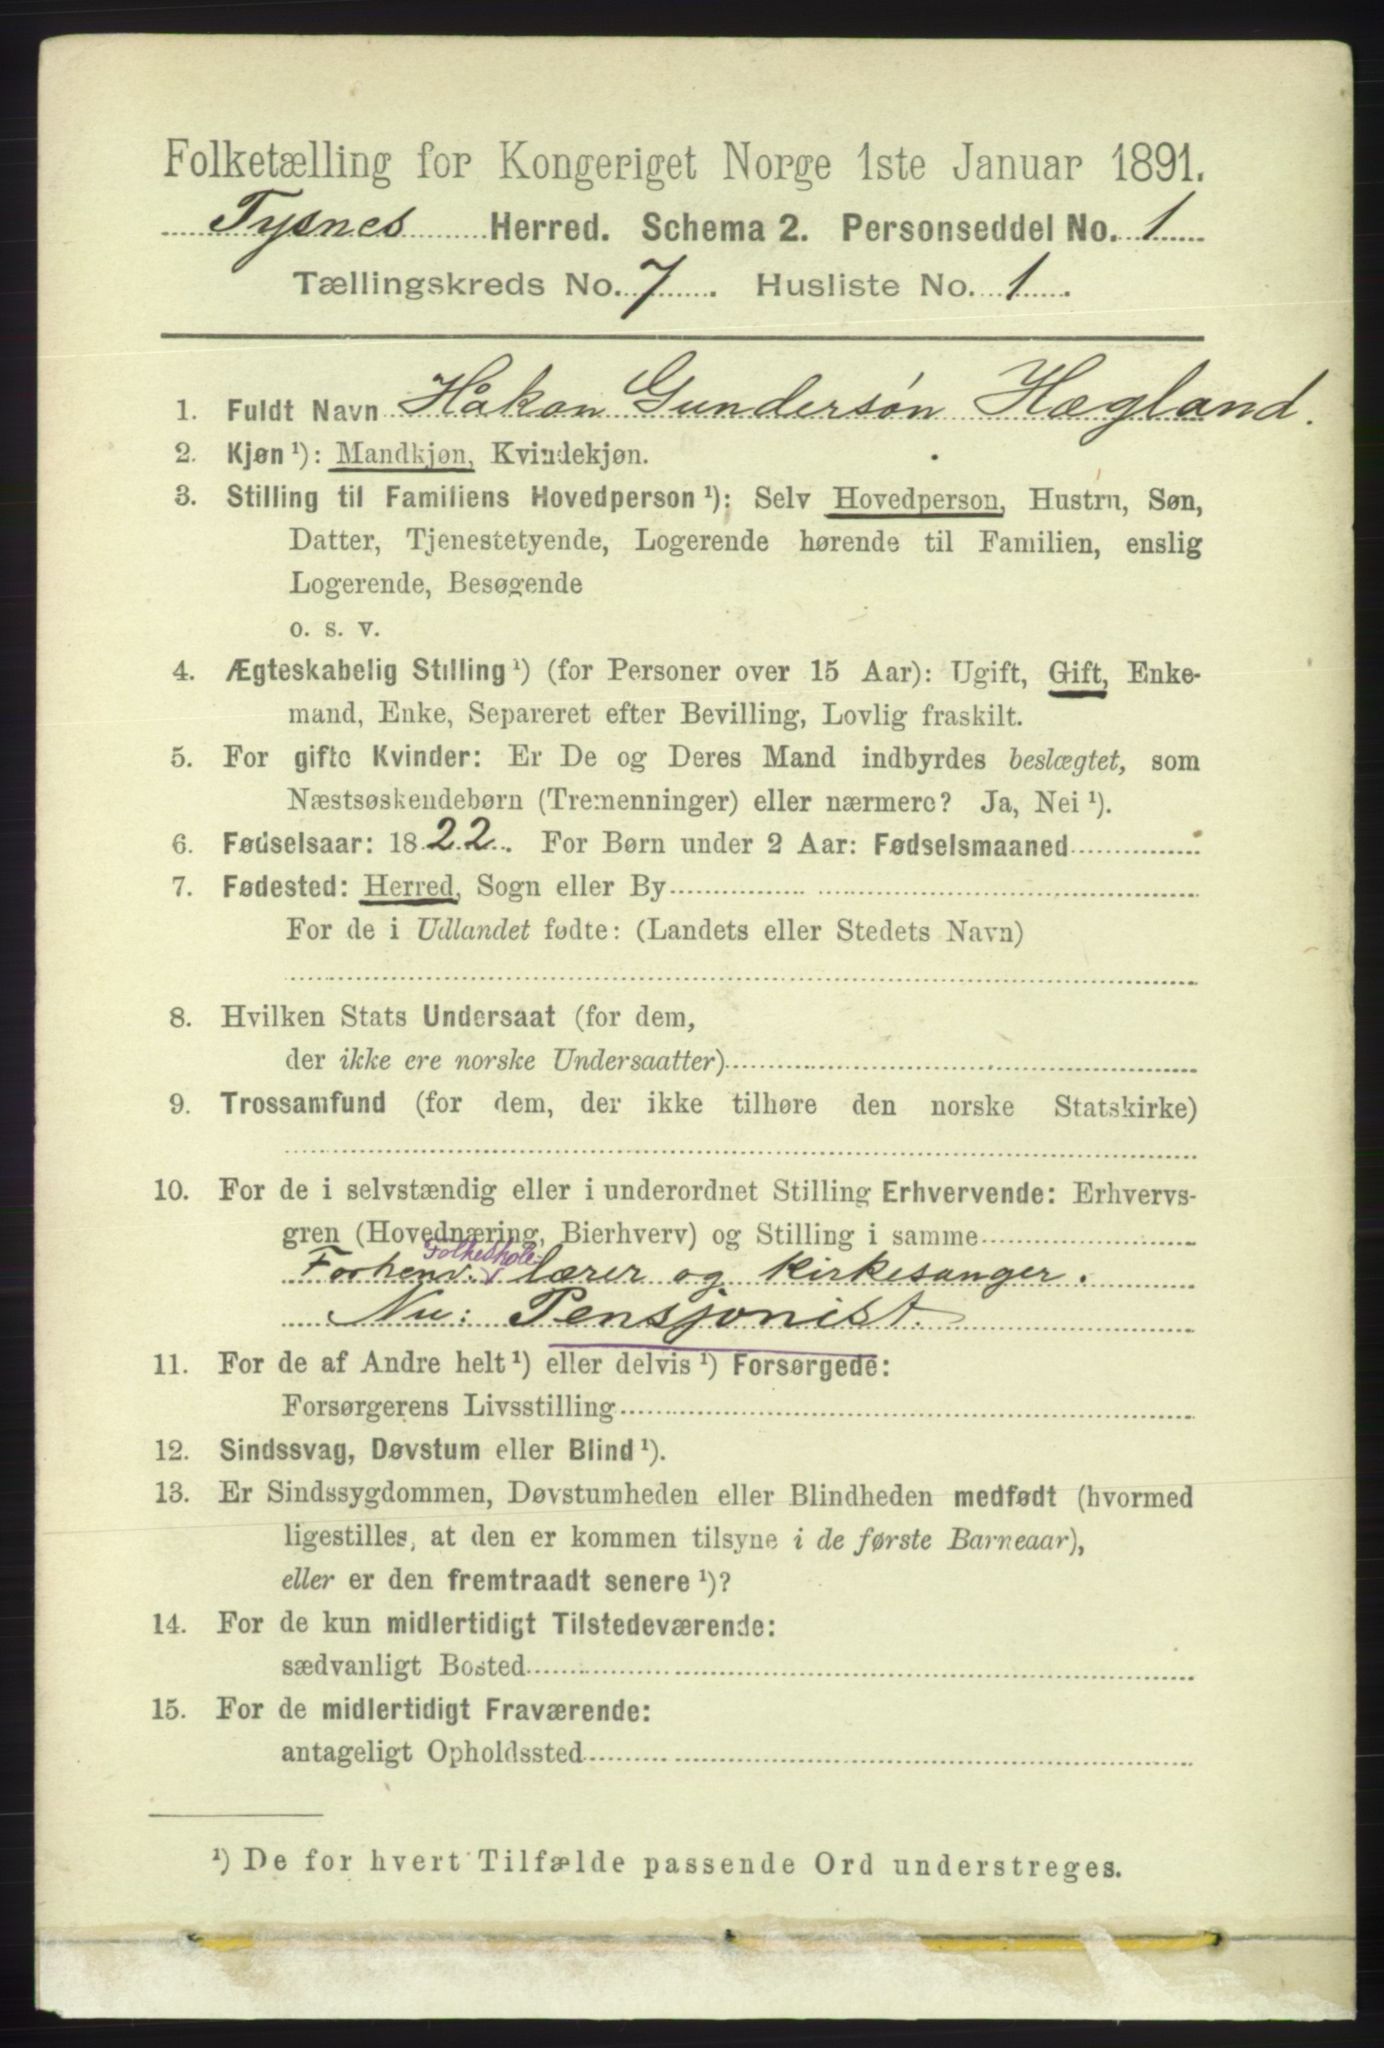 Folketælling for Kongeriget Norge 1ste Januar 1891.
Tysnes Herred. Schema 2. Personseddel No. 1
Tællingskreds No. 7. Husliste No. 1.
1. Fuldt Navn Håkon Gundersøn Hægland.
2. Kjøn ¹): Mandkjøn, Kvindekjøn.
3. Stilling til Familiens Hovedperson ¹): Selv Hovedperson, Hustru, Søn,
Datter, Tjenestetyende, Logerende hørende til Familien, enslig
Logerende, Besøgende
o. s. v.
4. Ægteskabelig Stilling ¹) (for Personer over 15 Aar): Ugift, Gift, Enke-
mand, Enke, Separeret efter Bevilling, Lovlig fraskilt.
5. For gifte Kvinder: Er De og Deres Mand indbyrdes beslægtet, som
Næstsøskendebørn (Tremenninger) eller nærmere? Ja, Nei ¹).
6. Fødselsaar: 1822. For Børn under 2 Aar: Fødselsmaaned
7. Fødested: Herred, Sogn eller By
For de i Udlandet fødte: (Landets eller Stedets Navn)
8. Hvilken Stats Undersaat (for dem,
der ikke ere norske Undersaatter)
9. Trossamfund (for dem, der ikke tilhøre den norske Statskirke)
10. For de i selvstændig eller i underordnet Stilling Erhvervende: Erhvervs-
gren (Hovednæring, Bierhverv) og Stilling i samme
Folkeskole-
Forhenv. lærer og kirkesanger.
Nu: Pensjonist.
11. For de af Andre helt ¹) eller delvis ¹) Forsørgede:
Forsørgerens Livsstilling
12. Sindssvag, Døvstum eller Blind ¹).
13. Er Sindssygdommen, Døvstumheden eller Blindheden medfødt (hvormed
ligestilles, at den er kommen tilsyne i de første Barneaar),
eller er den fremtraadt senere ¹)?
14. For de kun midlertidigt Tilstedeværende:
sædvanligt Bosted
15. For de midlertidigt Fraværende:
antageligt Opholdssted
¹) De for hvert Tilfælde passende Ord understreges.